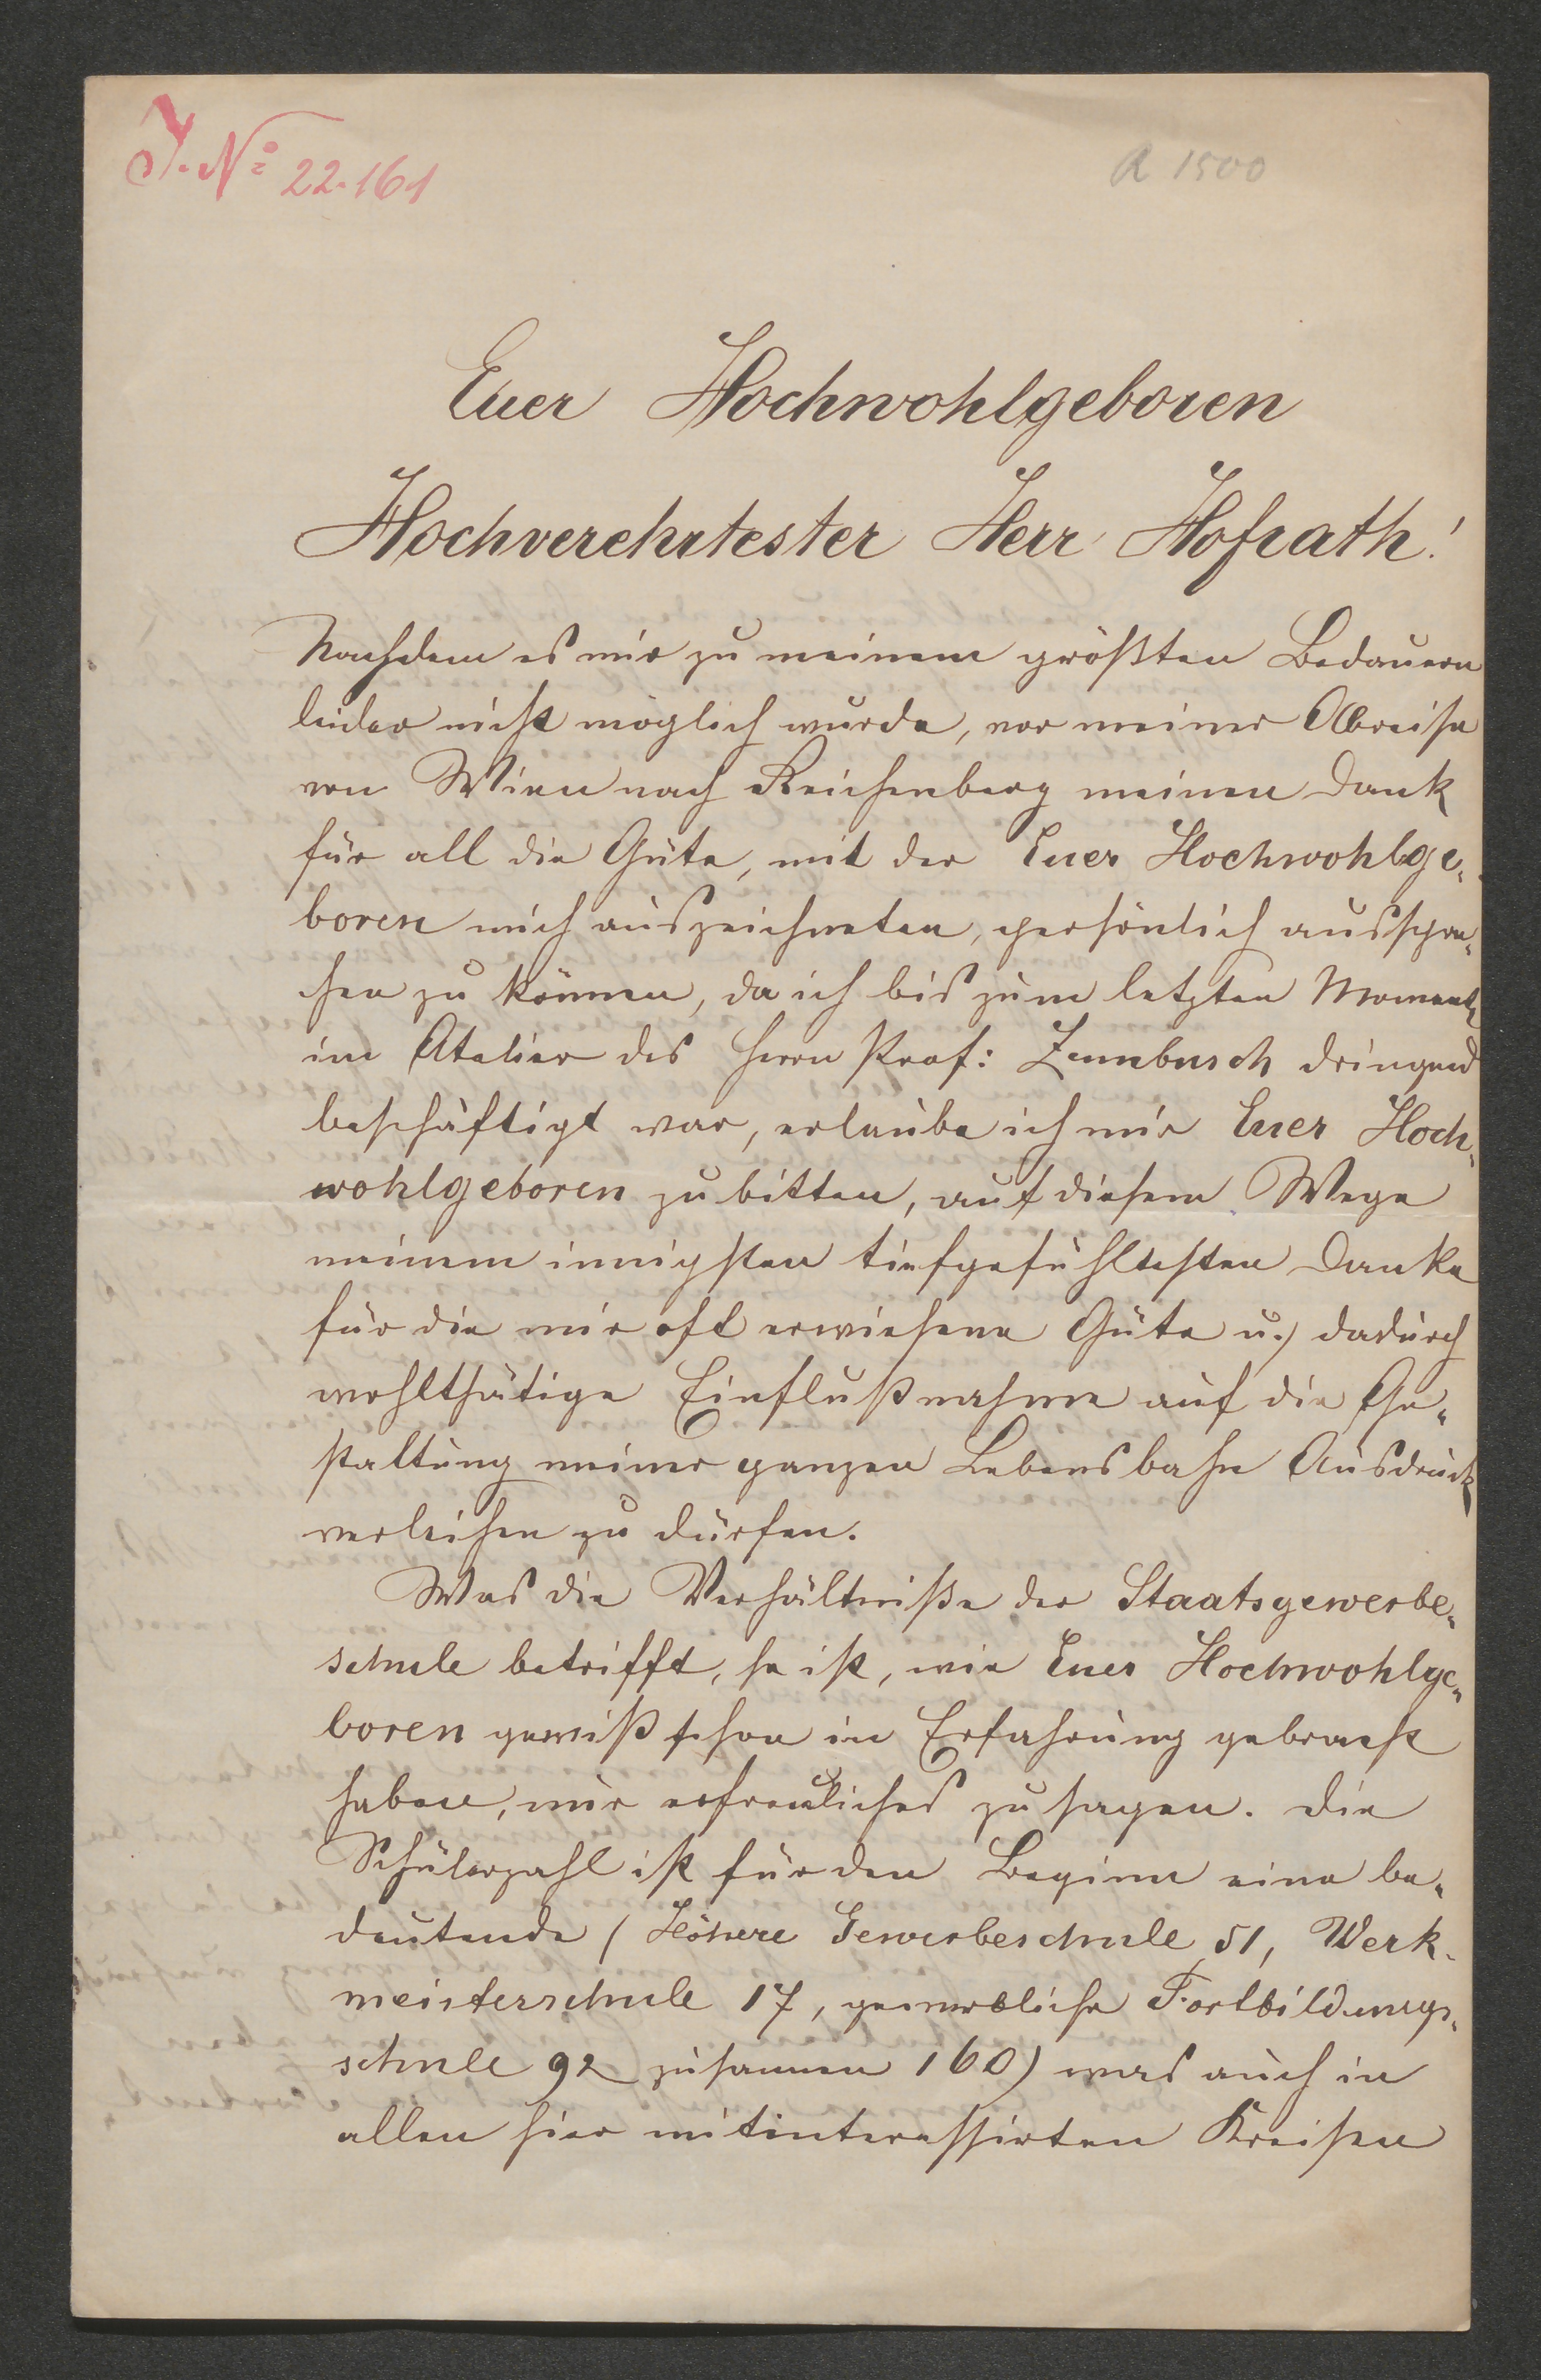 J. No 22.161
A 1500
Euer Hochwohlgeboren
Hochverehrtester Herr Hofrath!
Nachdem es mir zu meinem größten Bedauern
leider nicht möglich wurde, vor meiner Abreise
von Wien nach Reichenberg meinen Dank
für all die Güte, mit der Euer Hochwohlge-
boren mich auszeichneten, persönlich ausspre-
chen zu können, da ich bis zum letzten Momente
im Atelier des Herrn Prof: Zumbusch dringend
beschäftigt war, erlaube ich mir Euer Hoch-
wohlgeboren zu bitten, auf diesem Wege
meinem innigsten tiefgefühltesten Danke
für die mir oft erwiesene Güte u. dadurch
wohlthätige Einflußnahme auf die Ge-
staltung meiner ganzen Lebensbahn Ausdruck
verleihen zu dürfen.
Was die Verhältniße der Staatsgewerbe-
schule betrifft, so ist, wie Euer Hochwohlge-
boren gewiß schon in Erfahrung gebracht
haben, nur erfreuliches zu sagen. Die
Schülerzahl ist für den Beginn eine be-
deutende (Höhere Gewerbeschule 51, Werk-
meisterschule 17, gewerbliche Fortbildungs-
schule 92 zusammen 160) was auch in
allen hier mitinteressirten Kreisen